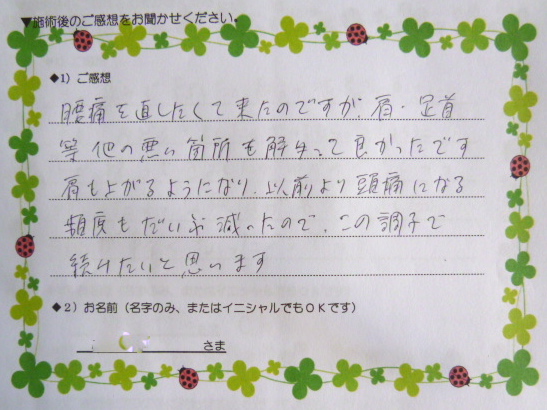 ▼施術後のご感想をお聞かせください。
◆1）ご感想
腰痛を直したくて来たのですが、肩・足首
等他の悪い箇所も解って良かったです
肩も上がるようになり、以前より頭痛になる
頻度もだいぶ減ったので、この調子で
続けたいと思います
◆2）お名前（名字のみ、またはイニシャルでもＯＫです）
さま